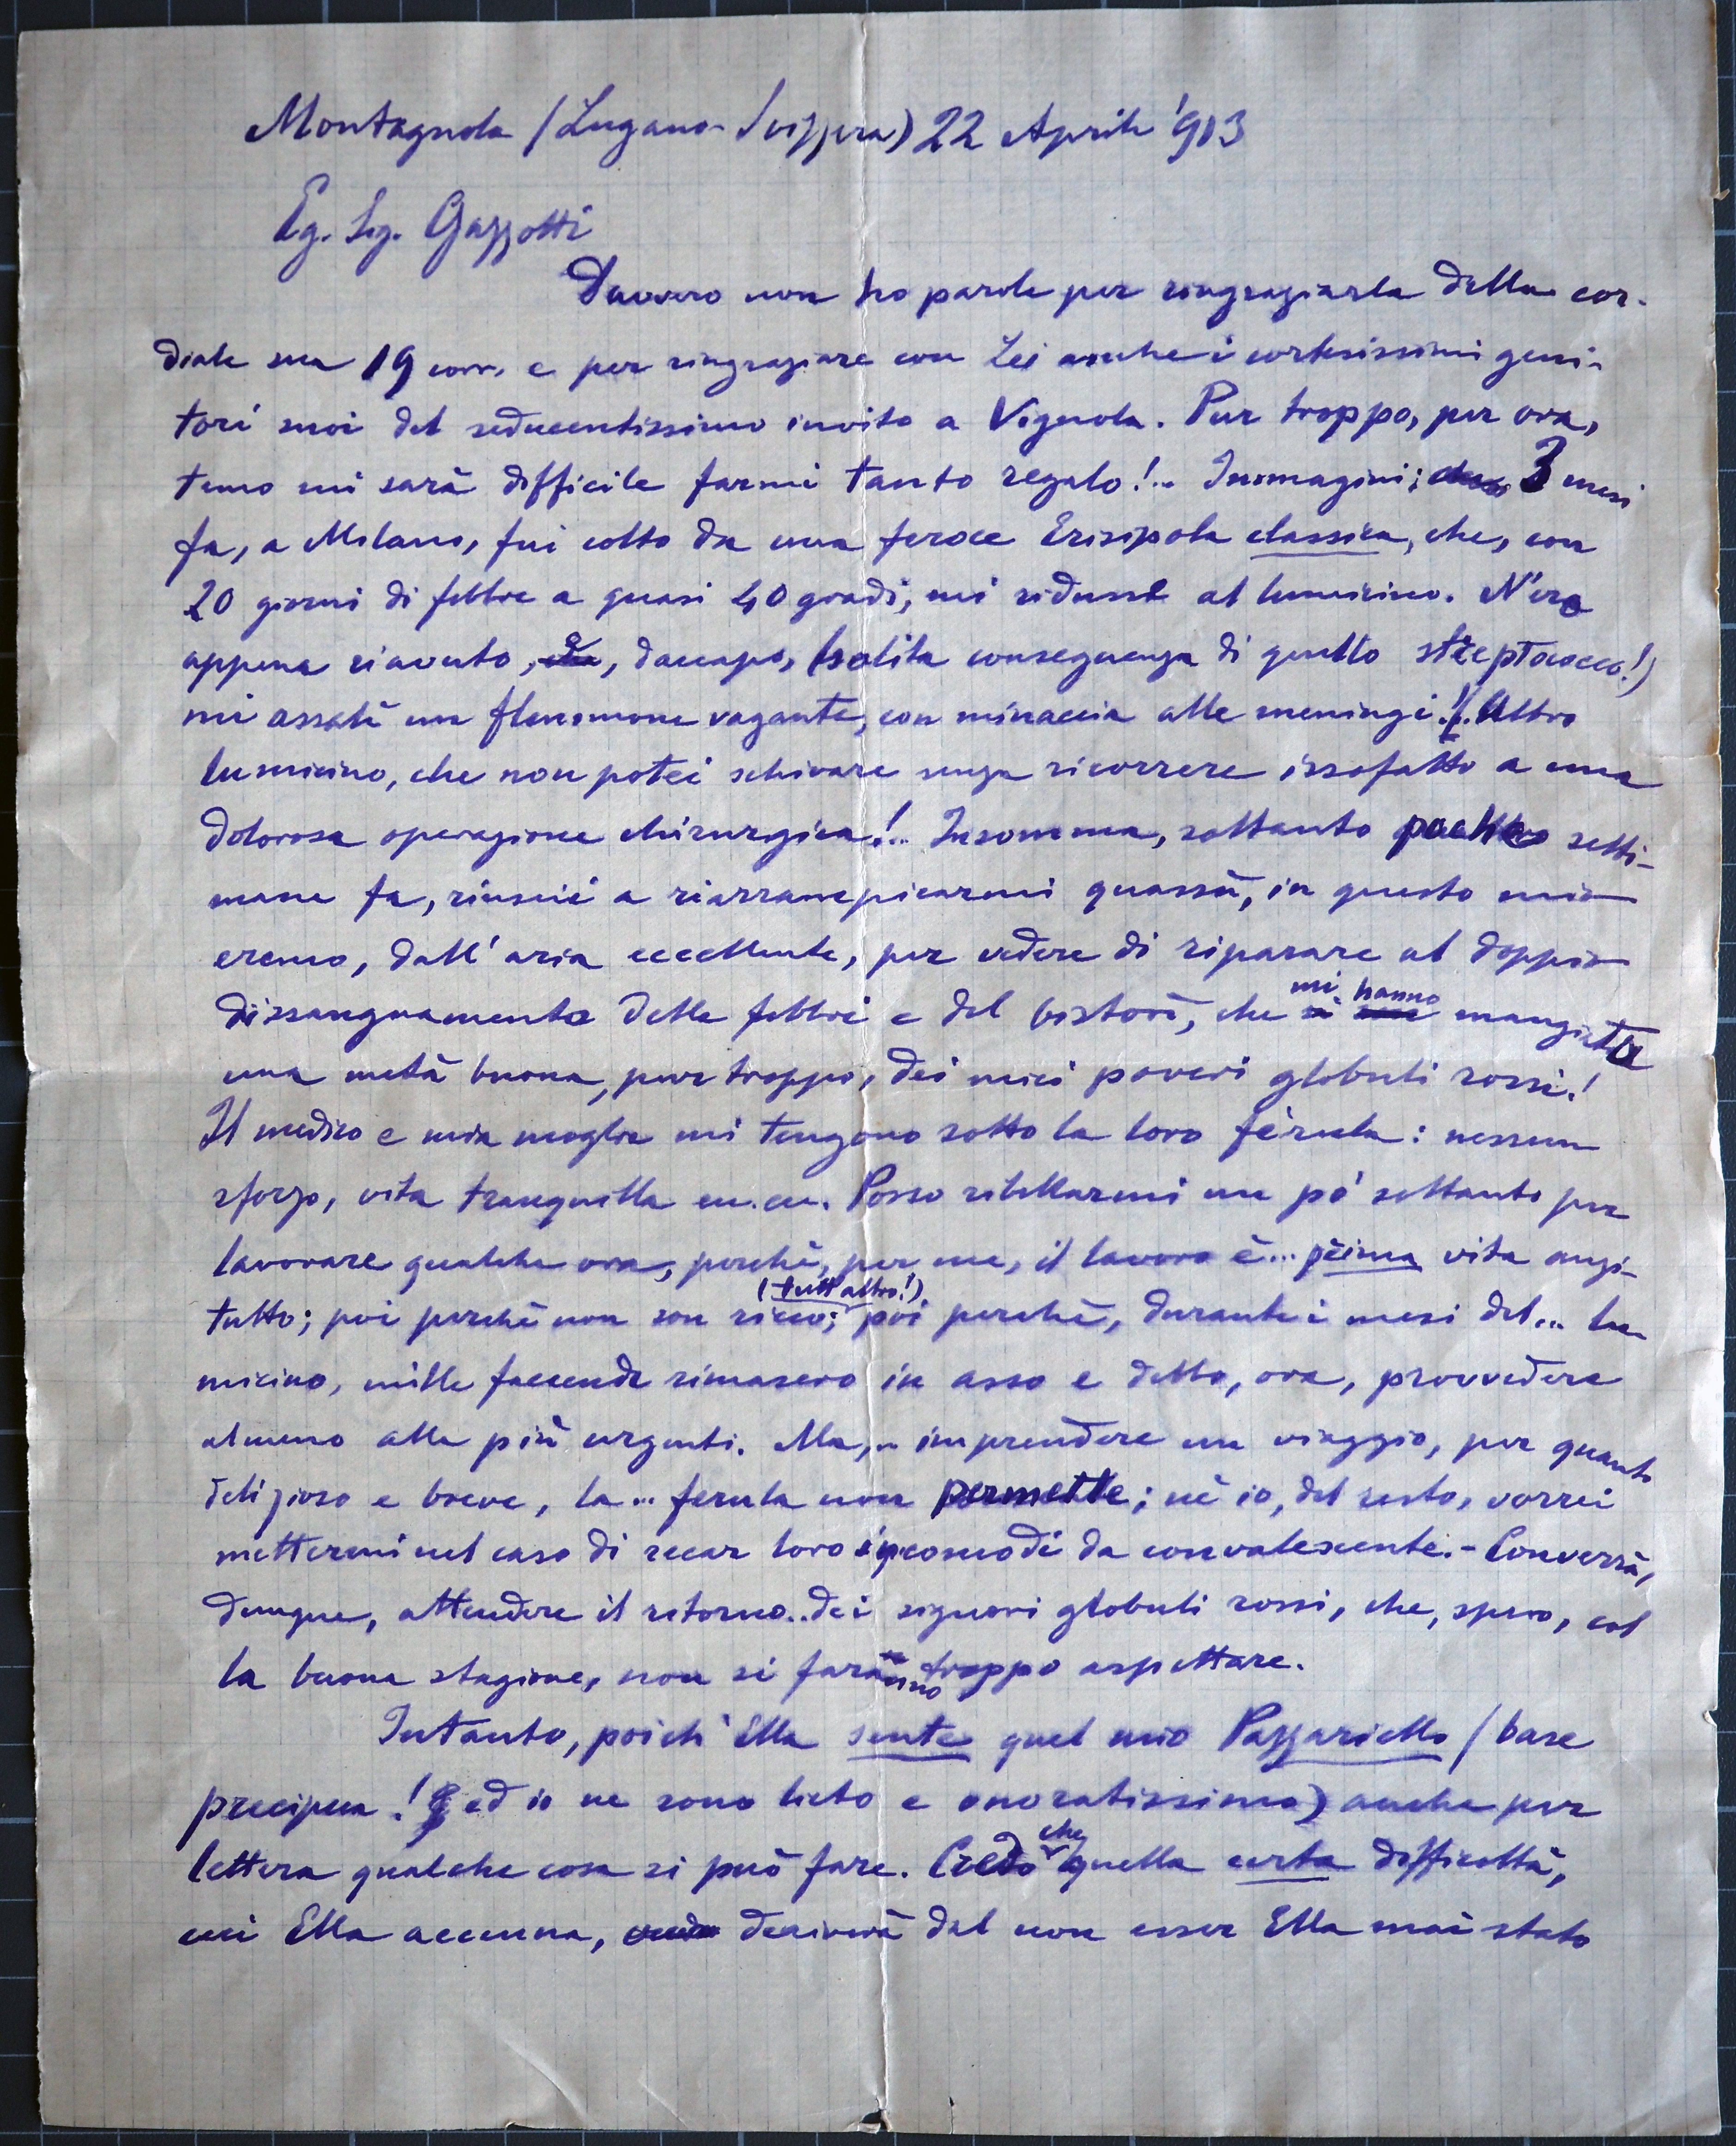 Montagnola (Lugano-Svizzera) 22 Aprile '903
Eg. Sig. Gazzotti
Davvero non ho parole per ringraziarla della cor-
diale sua 19 corr. e per ringraziare con Lei anche i cortesissimi geni-
tori suoi del seducentissimo invito a Vignola. Pur troppo, per ora,
temo mi sarà difficile farmi tanto regalo!.. Immagini; 3 mesi
fa, a Milano, fui colto da una feroce Erisipola classica, che, con
20 giorni di febbre a quasi 40 gradi, mi ridusse al lumicino. N'ero
appena riavuto, e, daccapo, (solita conseguenza di quello streptococco!)
mi assalì un flemmone vagante, con minaccia alle meningi!.. Altro
lumicino, che non potei schivare senza ricorrere issofatto a una
dolorosa operazione chirurgica!.. Insomma, soltanto poche setti-
mane fa, riuscii a riarrampicarmi quassù, in questo mio
eremo, dall'aria eccellente, per vedere di riparare al doppio
dissanguamento delle febbri e del bistorì, che mi hanno mangiata
una metà buona, pur troppo, dei miei poveri globuli rossi!
Il medico e mia moglie mi tengono sotto la loro fèrula: nessun
sforzo, vita tranquilla ecc. ecc. Posso ribellarmi un pò soltanto per
lavorare qualche ora, perchè, per me, il lavoro è... prima vita anzi-
tutto; poi perchè non son ricco; (tutt'altro!) poi perchè, durante i mesi del... lu-
micino, mille faccende rimasero in asso e debbo, ora, provvedere
almeno alle più urgenti. Ma,.. imprendere un viaggio, per quanto
delizioso e breve, la... ferula non permette; nè io, del resto, vorrei
mettermi nel caso di recar loro incomodi da convalescente. - Converrà,
dunque, attendere il ritorno.. dei signori globuli rossi, che, spero, col
la buona stagione, non si faranno troppo aspettare.
Intanto, poich' Ella sente quel mio Pazzariello (base
precipua! ed io ne sono lieto e onoratissimo) anche per
lettera qualche cosa si può fare. Credo che quella certa difficoltà,
cui Ella accenna, deriverà dal non esser Ella mai stato